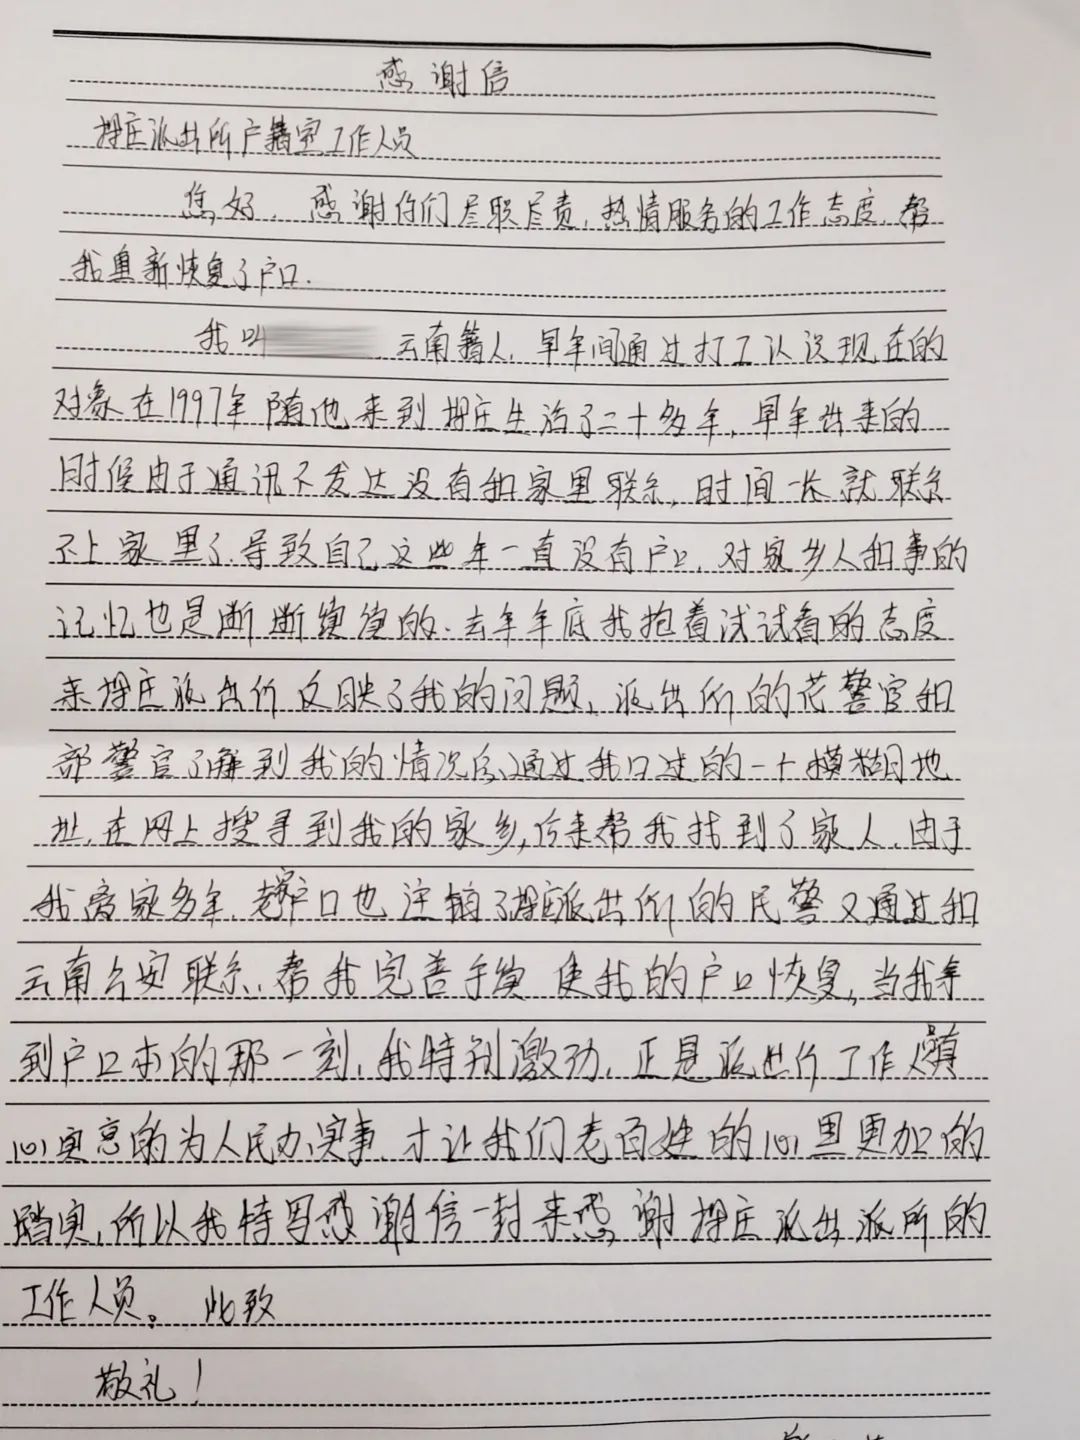 感谢信
探庄派出所户籍室工作人员
您好,感谢你们尽职尽责,热情服务的工作态度,帮
我重新恢复了户口.
我叫 云南籍人,早年间通过打工认识现在的
对象在1997年随他来到探庄生活了二十多年,早年出来的
时候由于通讯不发达没有和家里联系,时间一长就联系
不上家里了,导致自己这些年一直没有户口,对家乡人和事的
记忆也是断断续续的.去年年底我抱着试试看的态度
来探庄派出所反映了我的问题,派出所的花警官和
部警官了解到我的情况后,通过我口述的一个模糊地
址,在网上搜寻到我的家乡,后来帮我找到了家人,由于
我离家多年,老家户口也注销了探庄派出所的民警又通过和
云南公安联系,帮我完善手续使我的户口恢复,当我拿
到户口本的那一刻,我特别激动,正是派出所工作人员真
心实意的为人民办实事,才让我们老百姓的心里更加的
踏实,所以我特写感谢信一封来感谢探庄派出派所的
工作人员。 此致
敬礼!